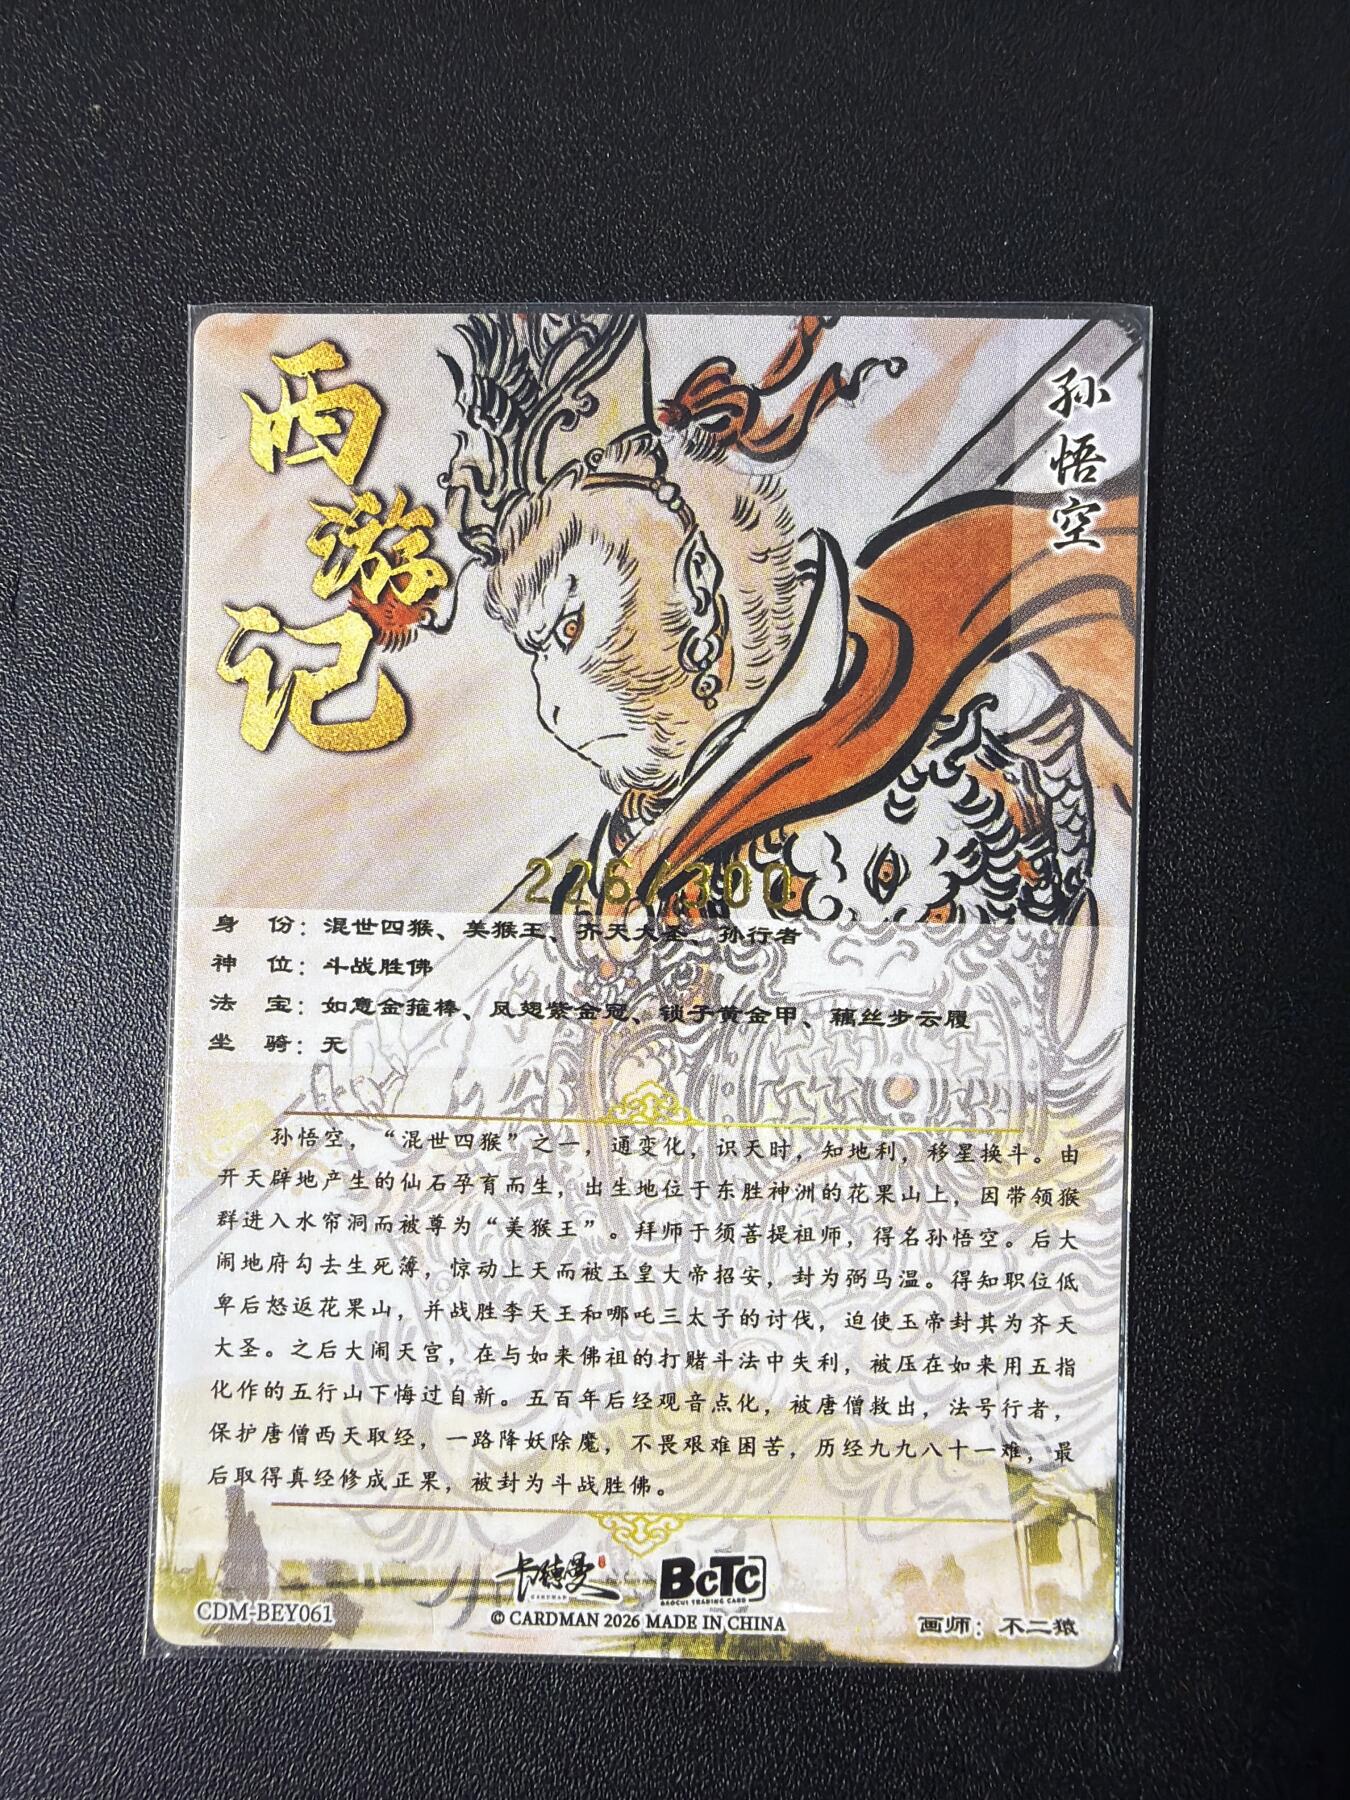 西游记
孙悟空
226/300
身 份：混世四猴、美猴王、齐天大圣、孙行者
神 位：斗战胜佛
法 宝：如意金箍棒、凤翅紫金冠、锁子黄金甲、藕丝步云履
坐 骑：无
孙悟空，“混世四猴”之一，通变化，识天时，知地利，移星换斗。由
开天辟地产生的仙石孕育而生，出生地位于东胜神洲的花果山上，因带领猴
群进入水帘洞而被尊为“美猴王”。拜师于须菩提祖师，得名孙悟空。后大
闹地府勾去生死薄，惊动上天而被玉皇大帝招安，封为弼马温。得知职位低
卑后怒返花果山，并战胜李天王和哪吒三太子的讨伐，迫使玉帝封其为齐天
大圣。之后大闹天宫，在与如来佛祖的打赌斗法中失利，被压在如来用五指
化作的五行山下悔过自新。五百年后经观音点化，被唐僧救出，法号行者，
保护唐僧西天取经，一路降妖除魔，不畏艰难困苦，历经九九八十一难，最
后取得真经修成正果，被封为斗战胜佛。
卡德曼 BCTC
CARDMAN BAOCUI TRADING CARD
CDM-BEY061 © CARDMAN 2026 MADE IN CHINA 画师：不二猿